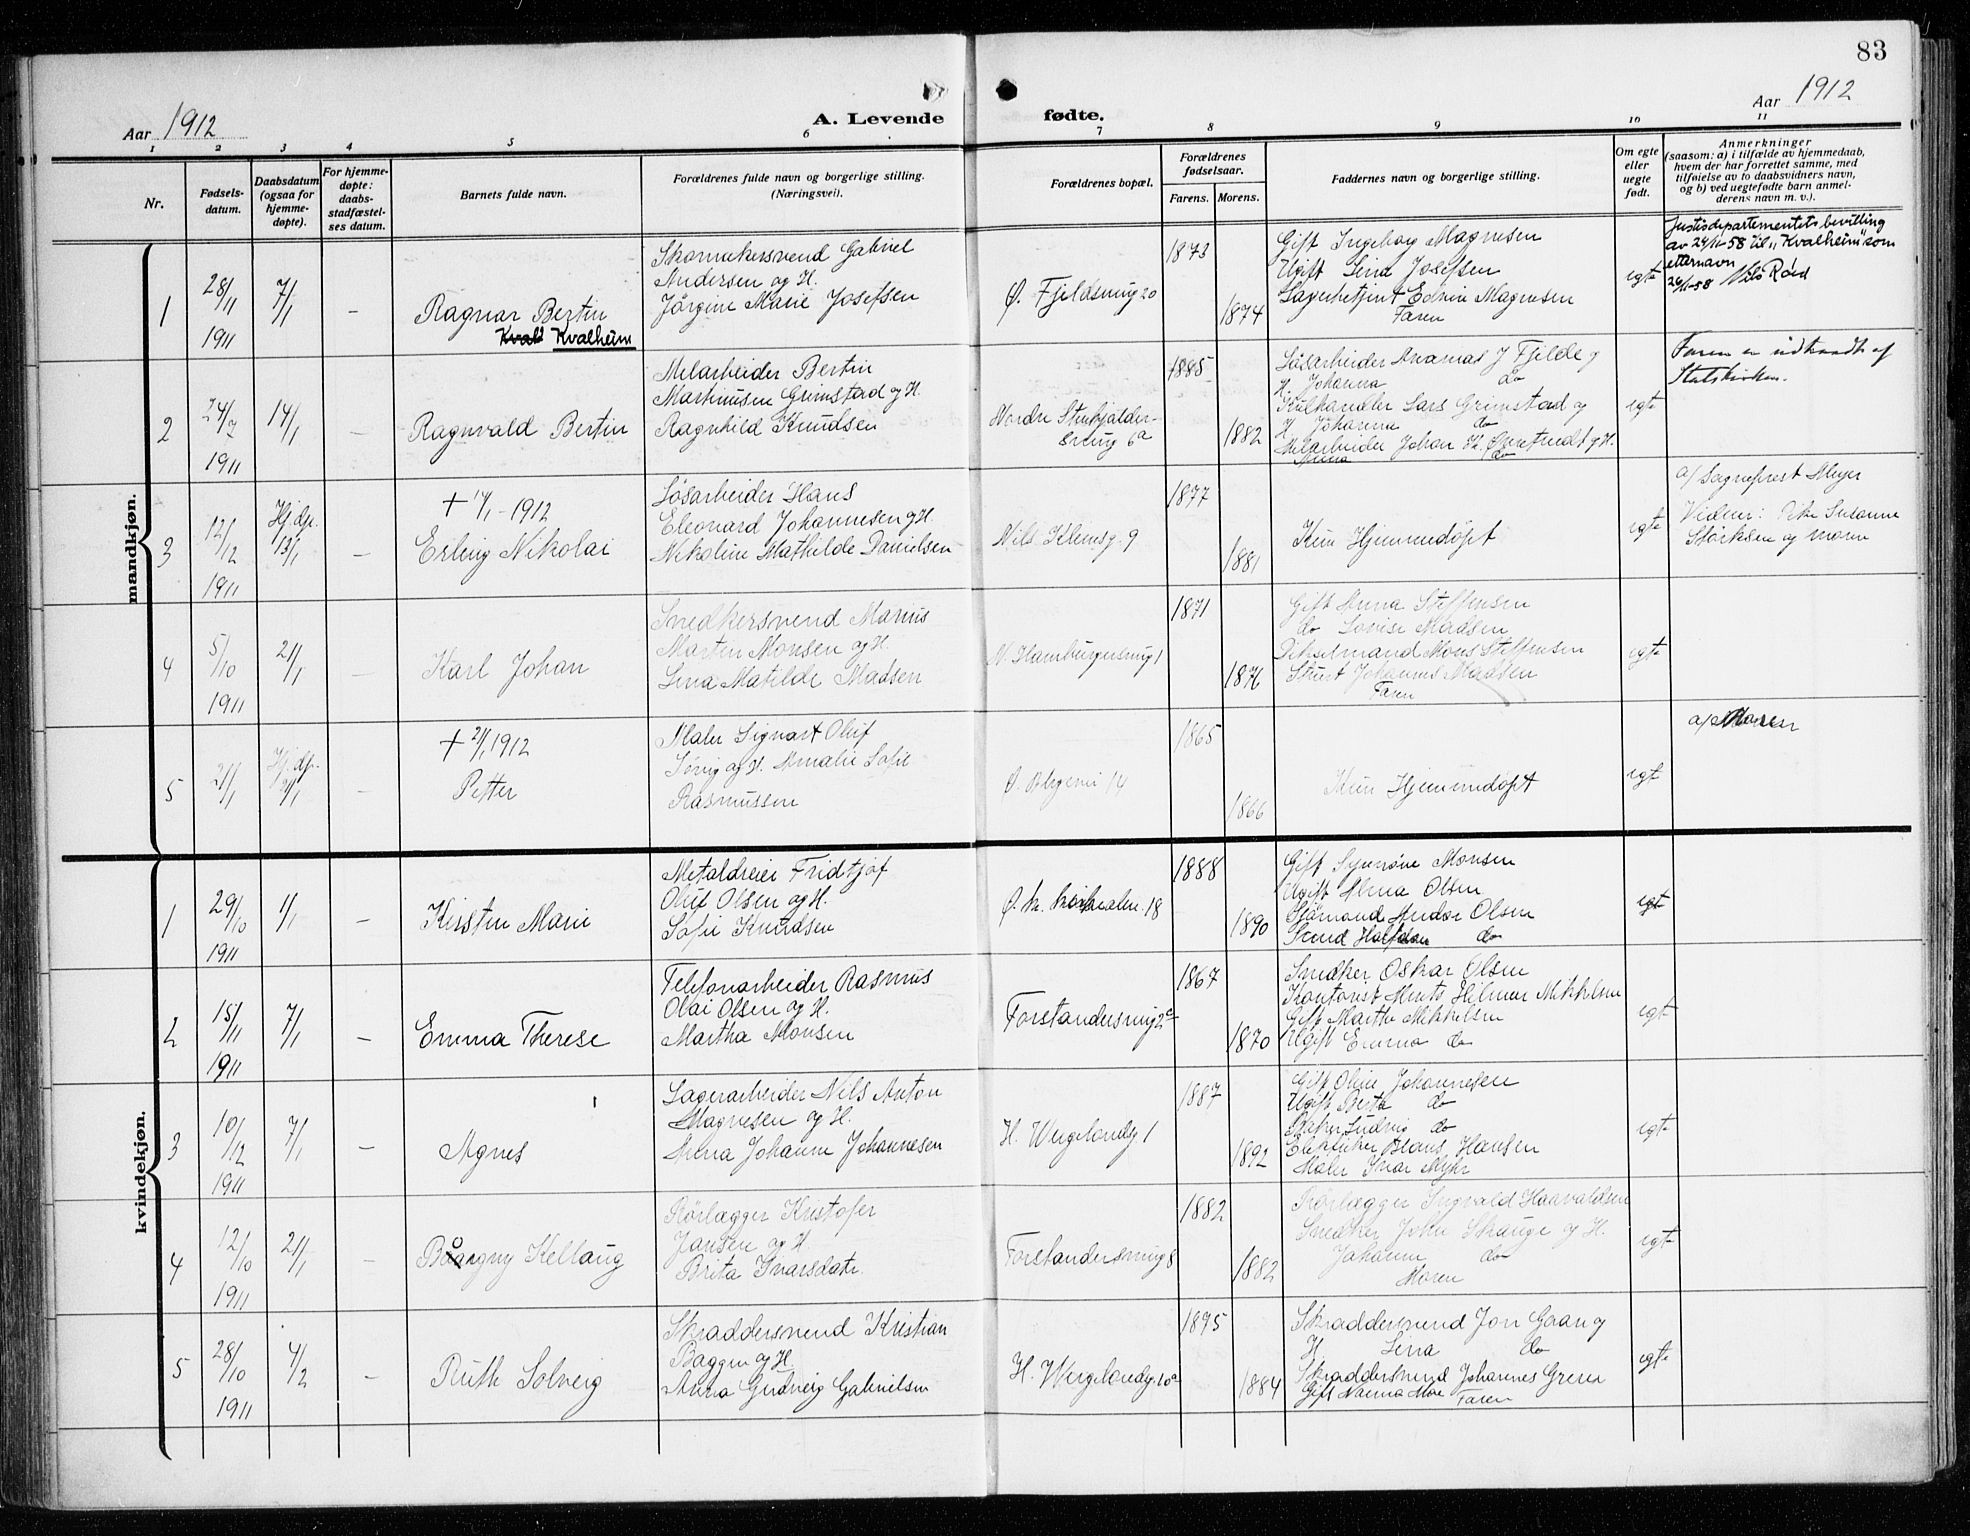 83
Aar 1912
A. Levende fødte.
Aar 1912
1 2 3 4 5 6 7 8 9 10 11
Nr.
Fødsels-
datum.
Daabsdatum
(ogsaa for
hjemme-
døpte).
For hjemme-
døpte:
daabs-
stadfæstel-
ses datum.
Barnets fulde navn.
Forældrenes fulde navn og borgerlige stilling.
(Næringsvei).
Forældrenes bopæl.
Forældrenes
fødselsaar.
Farens. Morens.
Faddernes navn og borgerlige stilling.
Om egte
eller
uegte
født.
Anmerkninger
(saasom: a) i tilfælde av hjemmedaab,
hvem der har forrettet samme, med
tilføielse av to daabsvidners navn,
og b) ved uegtefødte barn anmel-
derens navn m. v.).
mandkjøn.
1
28/11
1911
7/1
–
Ragnar Bertin
Kvalheim
Skomakersvend Gabriel
Andersen og H.
Jørgine Marie Josefsen
Ø. Fjeldsmug 20
1873
1874
Gift Ingeborg Magnesen
Ugift Lina Josefsen
Sagerbetjent Edvin Magnesen
Faren
egte
Justisdepartementets bevilling
av 24/11-58 til "Kvalheim" som
etternavn
Nils Røed
2
24/7
1911
14/1
–
Ragnvald Bertin
Melarbeider Bertin
Martinusen Grimstad og H.
Ragnhild Knudsen
Nordre
6a
1885
1882
Løsarbeider Ananias J Fjelde og
H. Johanna do
Kulhandler Lars Grimstad og
H Johanna do
Melarbeider Johan
Anna do
egte
Faren er udtraadt af
Statskirken.
3
12/12
1911
Hj.dp.
13/1
–
+ 14/1-1912
Erling Nikolai
Løsarbeider Hans
Eleonard Johannesen og H.
Nikoline Mathilde Danielsen
Nils Klemsg. 9
1877
1881
Kun Hjemmedøpt
egte
a/ Sogneprest Meyer
Vidner: Susanne
Størksen og moren
4
5/10
1911
21/1
–
Karl Johan
Snedkersvend Marius
Martin Monsen og H.
Lina Matilde Madsen
N. Hamburgersmug 1
1871
1876
Gift Anna Steffensen
do Lovise Madsen
Mons Steffensen
Johannes Madsen
Faren
egte
5
21/1
Hj.dp.
21/1
–
+ 21/1 1912
Petter
Maler Signart Oluf
og H. Amalie Sofie
Rasmussen
14
1865
1866
Kun Hjemmedøpt
egte
a/ Moren
kvindekjøn.
1
29/10
1911
1/1
–
Kirsten Marie
Metaldreier Fridtjof
Oluf Olsen og H.
Sofie Knudsen
18
1888
1890
Gift Synnøve Monsen
Ugift Alma Olsen
Sjømand Andor Olsen
Svend Halfdan do
egte
2
15/11
1911
7/1
–
Emma Therese
Telefonarbeider Rasmus
Olai Olsen og H.
Martha Monsen
Forstandersmug 2c
1867
1870
Smedker Oskar Olsen
Kontorist Ments Hilmar Mikkelsen
Gift Martha Mikkelsen
Ugift Emma do
egte
3
10/12
1911
7/1
–
Agnes
Lagerarbeider Nils Anton
Magnesen og H.
Anna Johanne Johannesen
H. Wergelandsg 1
1887
1892
Gift Oline Johannesen
Ugift Berta do
Ludvig do
Elektriker Hans Hansen
Maler Ivar Myhr
egte
4
12/10
1911
21/1
–
Bågny Kellaug
Rørlægger Kristofer
Jansen og H
Brita Ivarsdatr.
Forstandersmug 8
1882
1882
Rørlægger Ingvald Haavaldsen
Smedker John Skauge og H.
Johanne do
Moren
egte
5
28/10
1911
4/2
–
Ruth Solveig
Skraddersvend Kristian
Baggen og H.
Anna Gudveig Gabrielsen
H. Wergelandsg. 10a
1895
1884
Skraddersvend Jon Gaan og
H. Lina do
Skraddersvend Johannes Grerer
Gift Nanna Moe Faren
egte